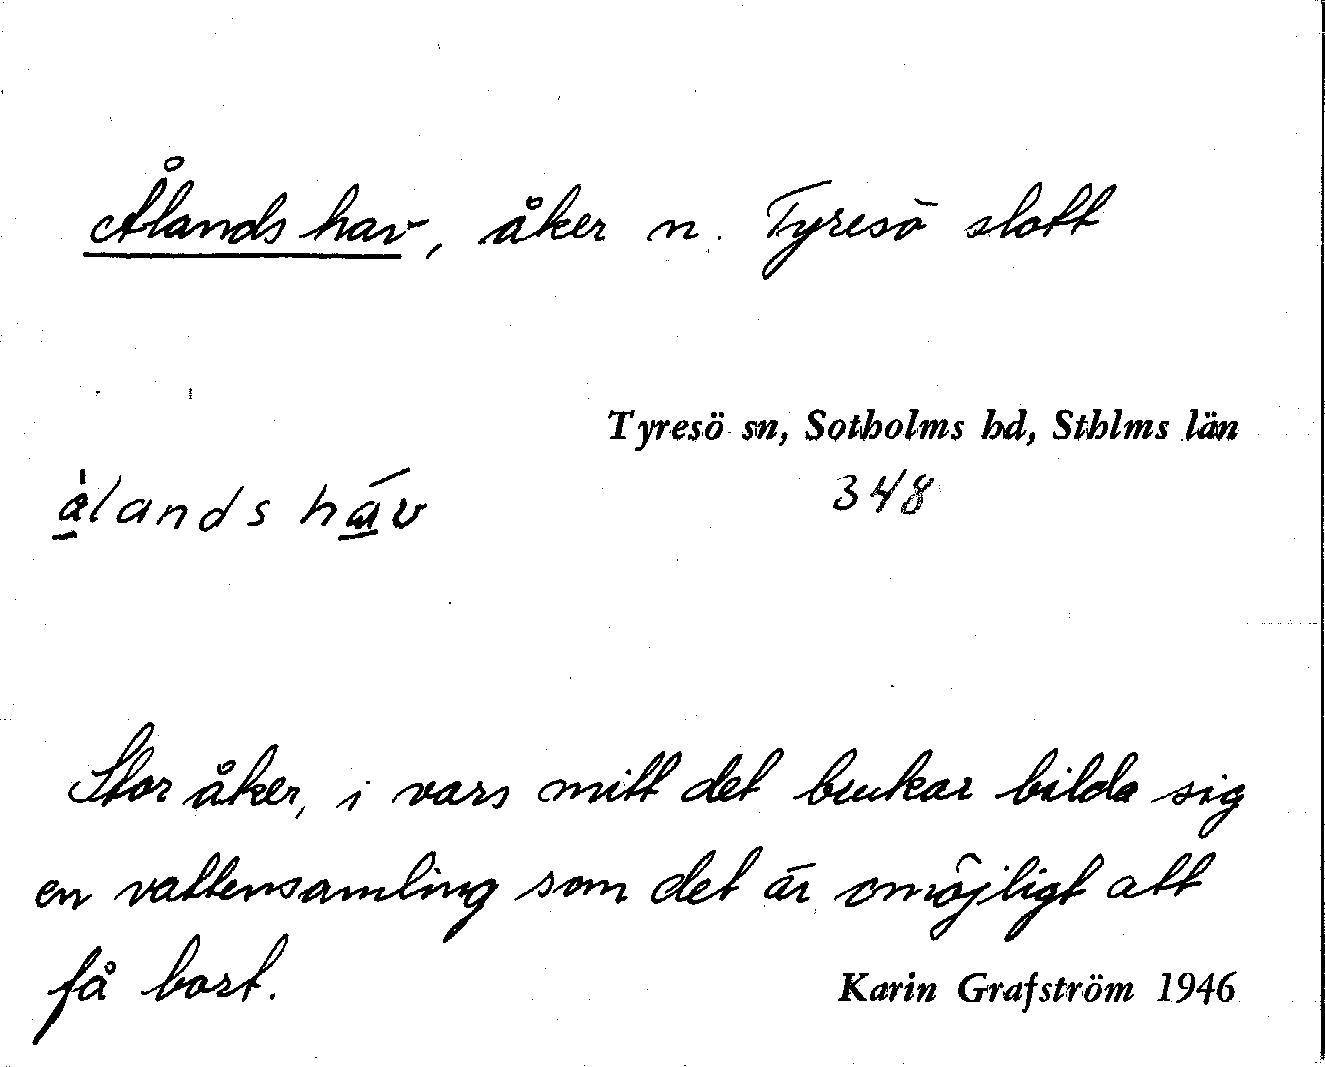 Ålands hav, åker n. Tyresö slott
Tyresö sn, Sotholms hd, Sthlms län
ålands hav 348
Stor åker, i vars mitt det brukar bilda sig
en vattensamling som det är omöjligt att
få bort.
Karin Grafström 1946